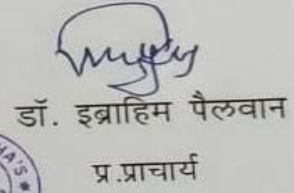 डॉ. इब्राहिम पैलवान
प्र.प्राचार्य